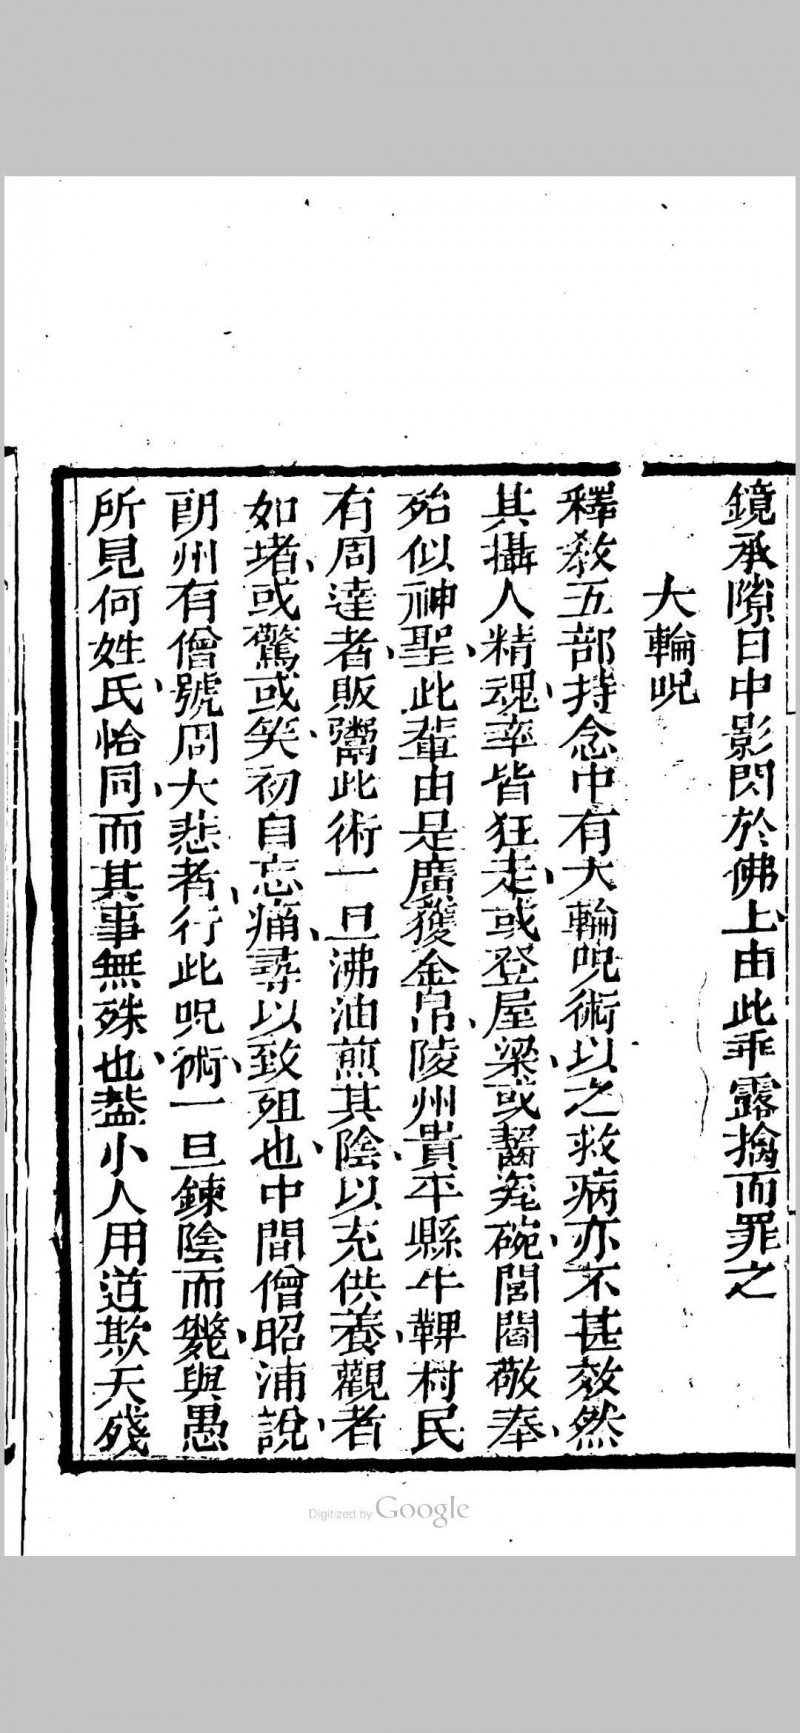 鏡承隙日中影閃於佛上由此乖露擒而罪之
大輪呪
釋教五部持念中有大輪呪術以之救病亦不甚效然
其攝人精魂率皆狂走或登屋梁或齧瓷碗閭閻敬奉
殆似神聖此輩由是廣獲金帛陵州貴平縣牛鞞村民
有周達者販鬻此術一旦沸油煎其陰以充供養觀者
如堵或驚或笑初自忘痛尋以致殂也中間僧昭浦說
朗州有僧號周大悲者行此呪術一旦鍊陰而斃與愚
所見何姓氏恰同而其事無殊也葢小人用道欺天殘
Digitized by Google